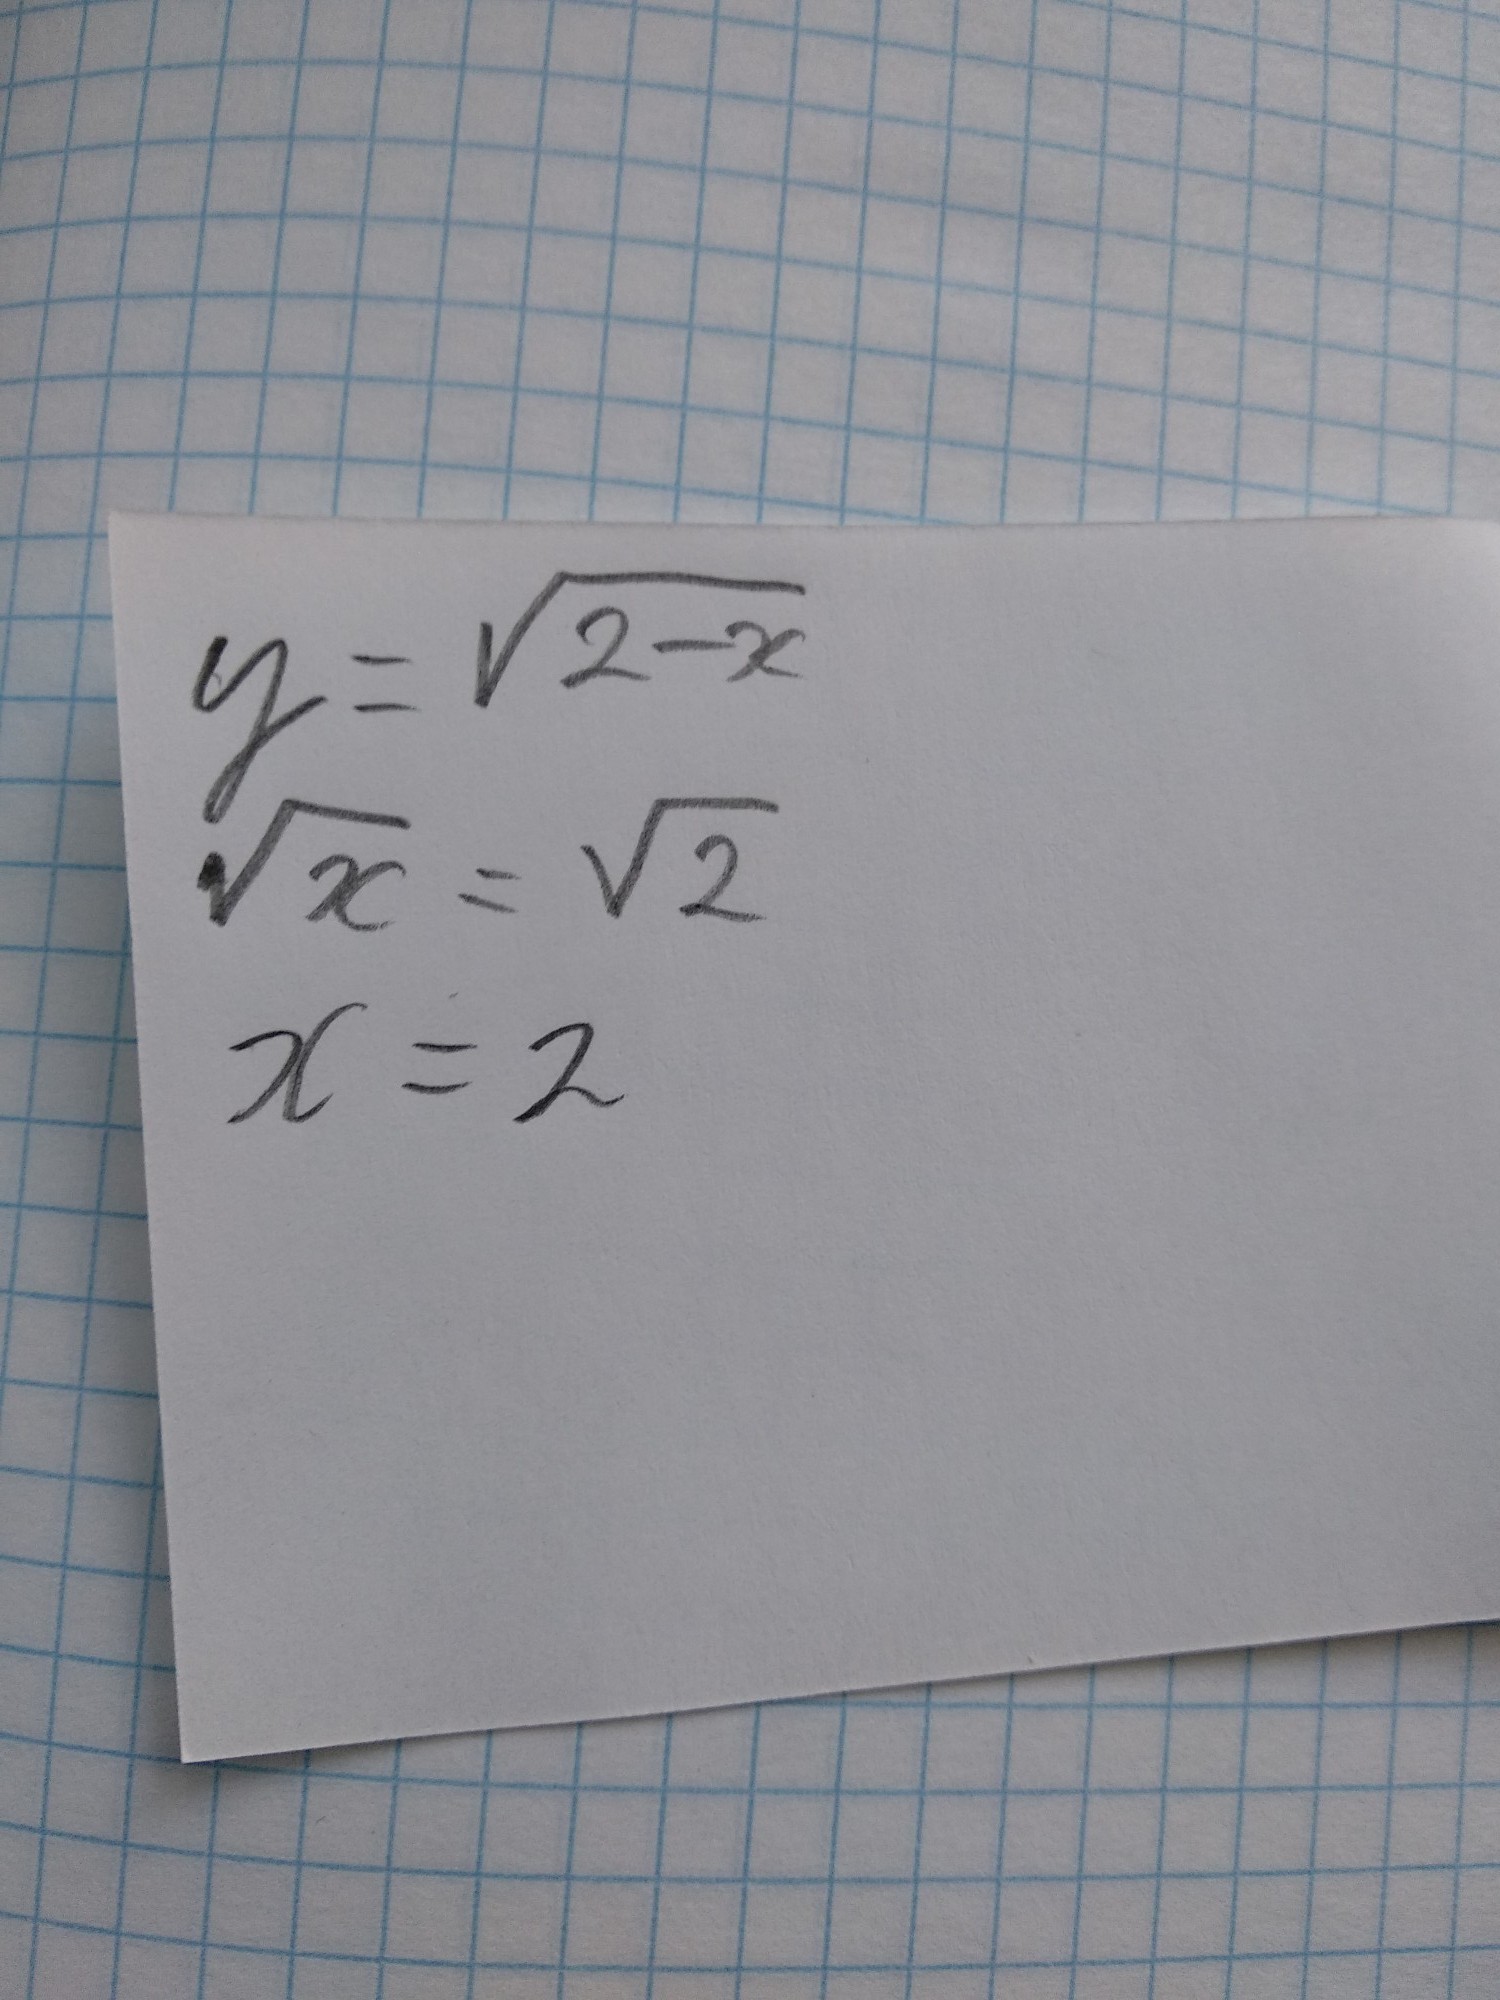 y = √(2-x)
√x = √2
x = 2